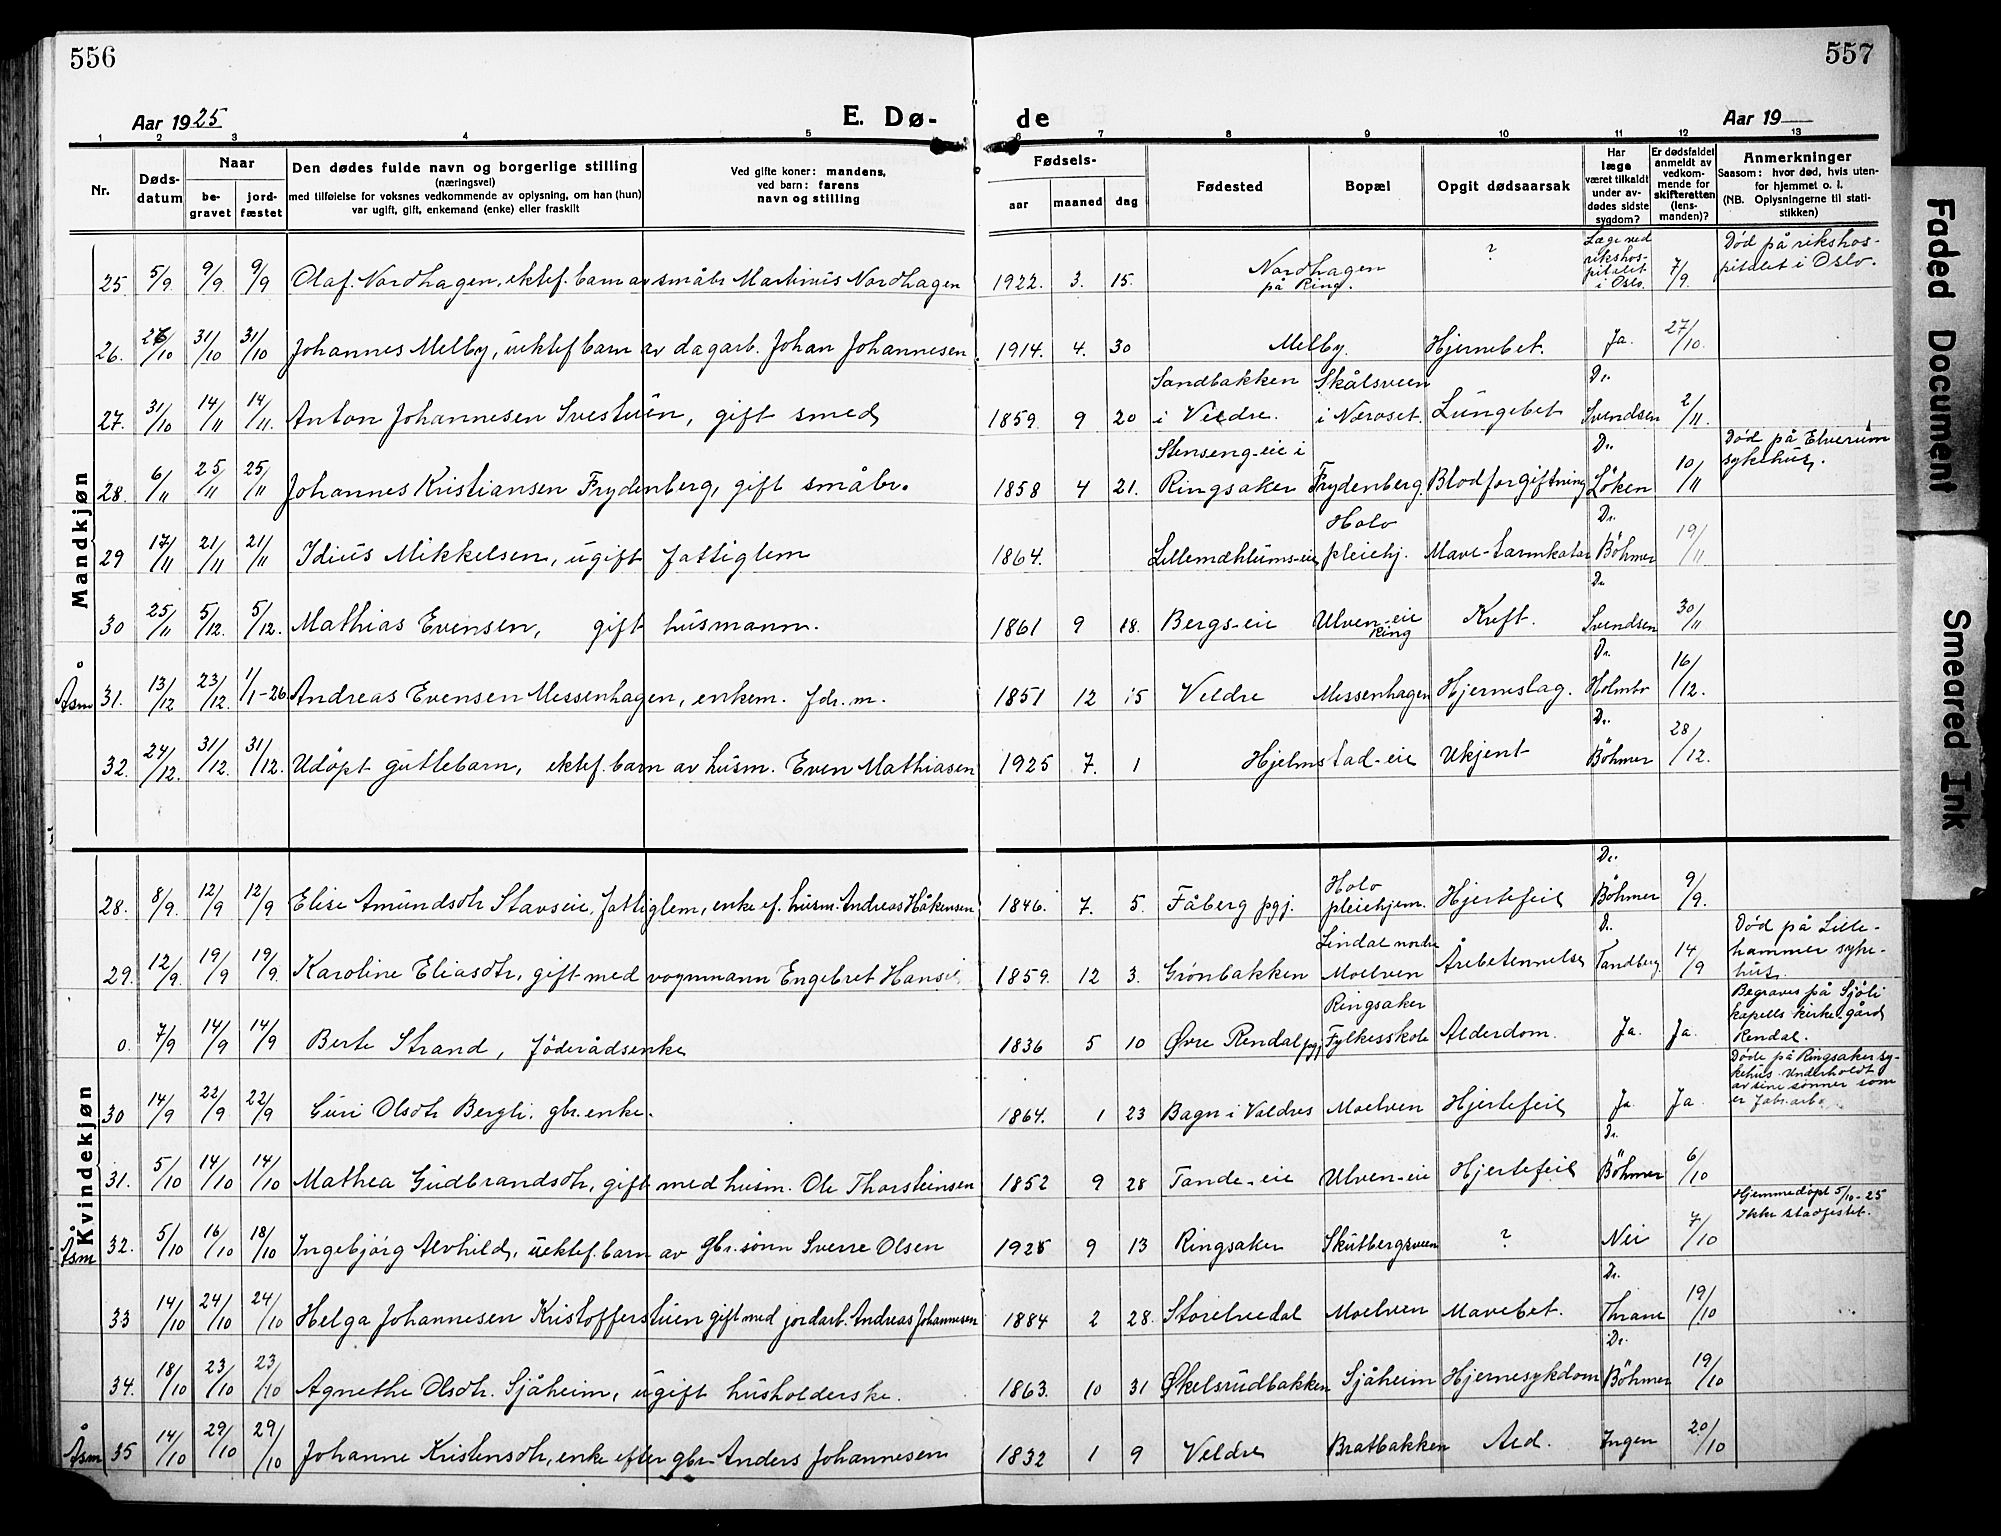 556
557
Aar 1925
E. Dø-
de
Aar 19
1 2 3 4 5 6 7 8 9 10 11 12 13
Nr.
Døds-
datum
Naar
be-
gravet
jord-
fæstet
Den dødes fulde navn og borgerlige stilling
(næringsvei)
med tilføielse for voksnes vedkommende av oplysning, om han (hun)
var ugift, gift, enkemand (enke) eller fraskilt
Ved gifte koner: mandens,
ved barn: farens
navn og stilling
Fødsels-
aar
maaned
dag
Fødested
Bopæl
Opgit dødsaarsak
Har
læge
været tilkaldt
under av-
dødes sidste
sygdom?
Er dødsfaldet
anmeldt av
vedkom-
mende for
skifteretten
(lens-
manden)?
Anmerkninger
Saasom: hvor død, hvis uten-
for hjemmet o. l.
(NB. Oplysningerne til stati-
stikken)
Mandkjøn
25. 5/9. 9/9 9/9 Olaf Nordhagen, ektef. barn av småbr. Martinus Nordhagen 1922. 3. 15. Nordhagen på Ring. ? Læge ved rikshos-pitalet i Oslo. 7/9. Død på rikshos-pitalet i Oslo.
26. 26/10 31/10 31/10 Johannes Melby, uektef barn av dagarb. Johan Johannesen 1914. 4. 30 Melby. Hjernebet. Ja. 27/10.
27. 31/10 14/11 14/11. Anton Johannesen Svestuen, gift smed 1859. 9 20 Sandbakken i Veldre. Skålsveen i Næroset. Lungebet Dr. Svendsen 2/11.
28. 6/11 25/11 25/11 Johannes Kristiansen Frydenberg, gift småbr. 1858 4 21. Stenseng-eie i Ringsaker Frydenberg. Blodforgiftning Dr. Løken 10/11 Død på Elverum sykehus.
29 17/11 21/11 21/11 Idius Mikkelsen, ugift fattiglem 1864. Lillemæhlums-eie Holo pleiehj. Mave-tarmkatar Dr. Böhmer 19/11
30 25/11 5/12. 5/12. Mathias Evensen, gift husmann. 1861 9 18. Bergs-eie Ulven-eie Ring Kreft. Dr Svendsen 30/11
Åsm 31. 13/12 23/12. 1/1-26 Andreas Evensen Messenhagen, enkem. fdr. m. 1851 12 15 Veldre Messenhagen Hjerneslag. Dr. Holmbo 16/12.
32. 24/12. 31/12. 31/12. Udøpt guttebarn, ektef. barn av husm. Even Mathiasen 1925 7. 1 Hjelmstad-eie Ukjent Dr. Böhmer 28/12.
Kvindekjøn
28. 8/9. 12/9 12/9 Elise Amundsdtr Stavseie, fattiglem, enke ef. husm. Andreas Håkensen 1846. 7. 5. Fåberg pgj. Holo pleiehjem. Hjertefeil Dr. Böhmer 9/9.
29. 12/9. 19/9 19/9. Karoline Eliasdtr, gift med vognmann Engebret 1859. 12 3. Grønbakken Lindal nordre Moelven Årebetennelse Dr. Tandberg. 14/9 Død på Lille-hammer syke-hus.
0. 7/9 14/9 14/9 Berte Strand, föderådsenke 1836 5 10 Øvre Rendal pgj Ringsaker Fylkesskole Alderdom. Ja Ja. Begraves på Sjöli kapells kirke-gård Rendal.
30 14/9 22/9 22/9 Guri Olsdtr Bergli. gbr. enke. 1864. 1 23 Bagn i Valdres Moelven Hjertefeil Ja. Ja. Døde på Ringsaker sy-kehus. Underholdt av sine sønner som er
31. 5/10 14/10 14/10 Mathea Gudbrandsdtr, gift med husm. Ole Thorsteinsen 1852 9 28 Tande-eie Ulven-eie Hjertefeil Dr. Böhmer 6/10
Åsm 32. 5/10 16/10 18/10 Ingebjörg Alvhild, uektef. barn av gbr. sönn Sverre Olsen 1925 9 13 Ringsaker Skutbergsveen ? Nei 7/10 Hjemmedöpt 5/10-25 Ikke stadfestet.
33 14/10 24/10 24/10 Helga Johannesen Kristofferstuen gift med jordarb. Andreas Johannesen 1884 2 28. Storelvedal Moelven Mavebet. Dr. Thrane 19/10
34. 18/10 23/10 23/10 Agnethe Olsdtr. Sjåheim, ugift husholderske. 1863. 10 31 Økelsrudbakken Sjåheim Hjernesykdom Dr. Böhmer 19/10
Åsm 35 14/10 29/10 29/10 Johanne Kristensdtr, enke efter gbr. Anders Johannesen 1832 1 9 Veldre Bratbakken Ald. Ingen 20/10
Faded Document
Smeared Ink